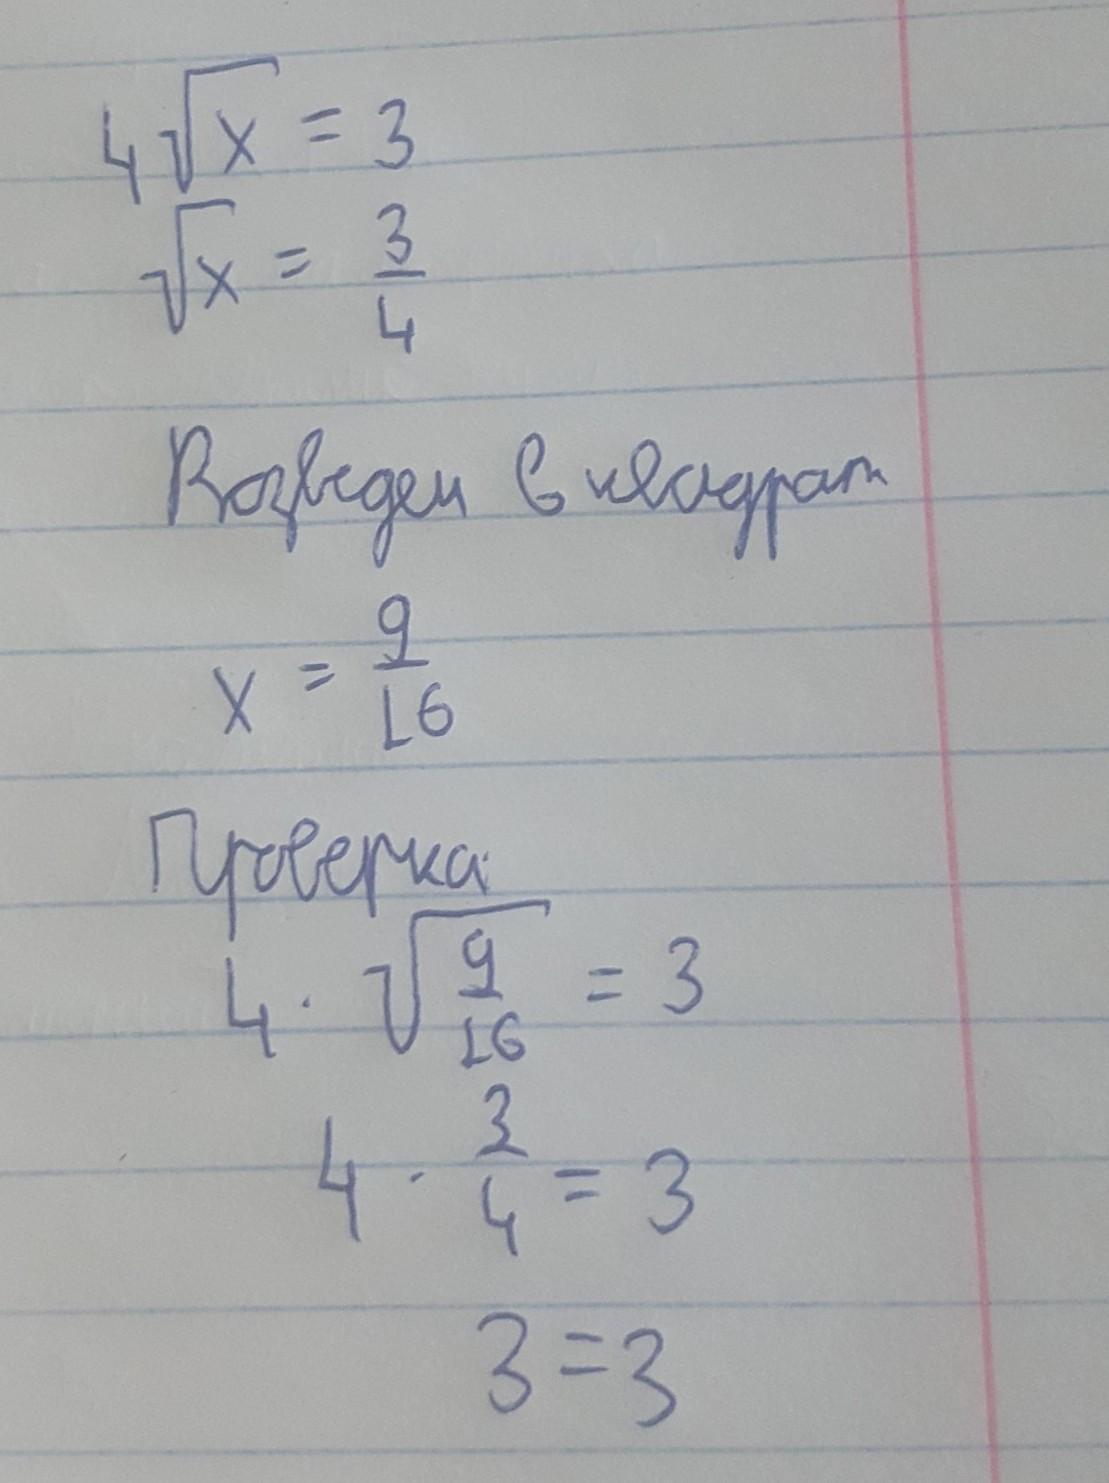 4√x = 3
√x = 3/4
Возведем в квадрат
x = 9/16
Проверка:
4 · √9/16 = 3
4 · 3/4 = 3
3 = 3